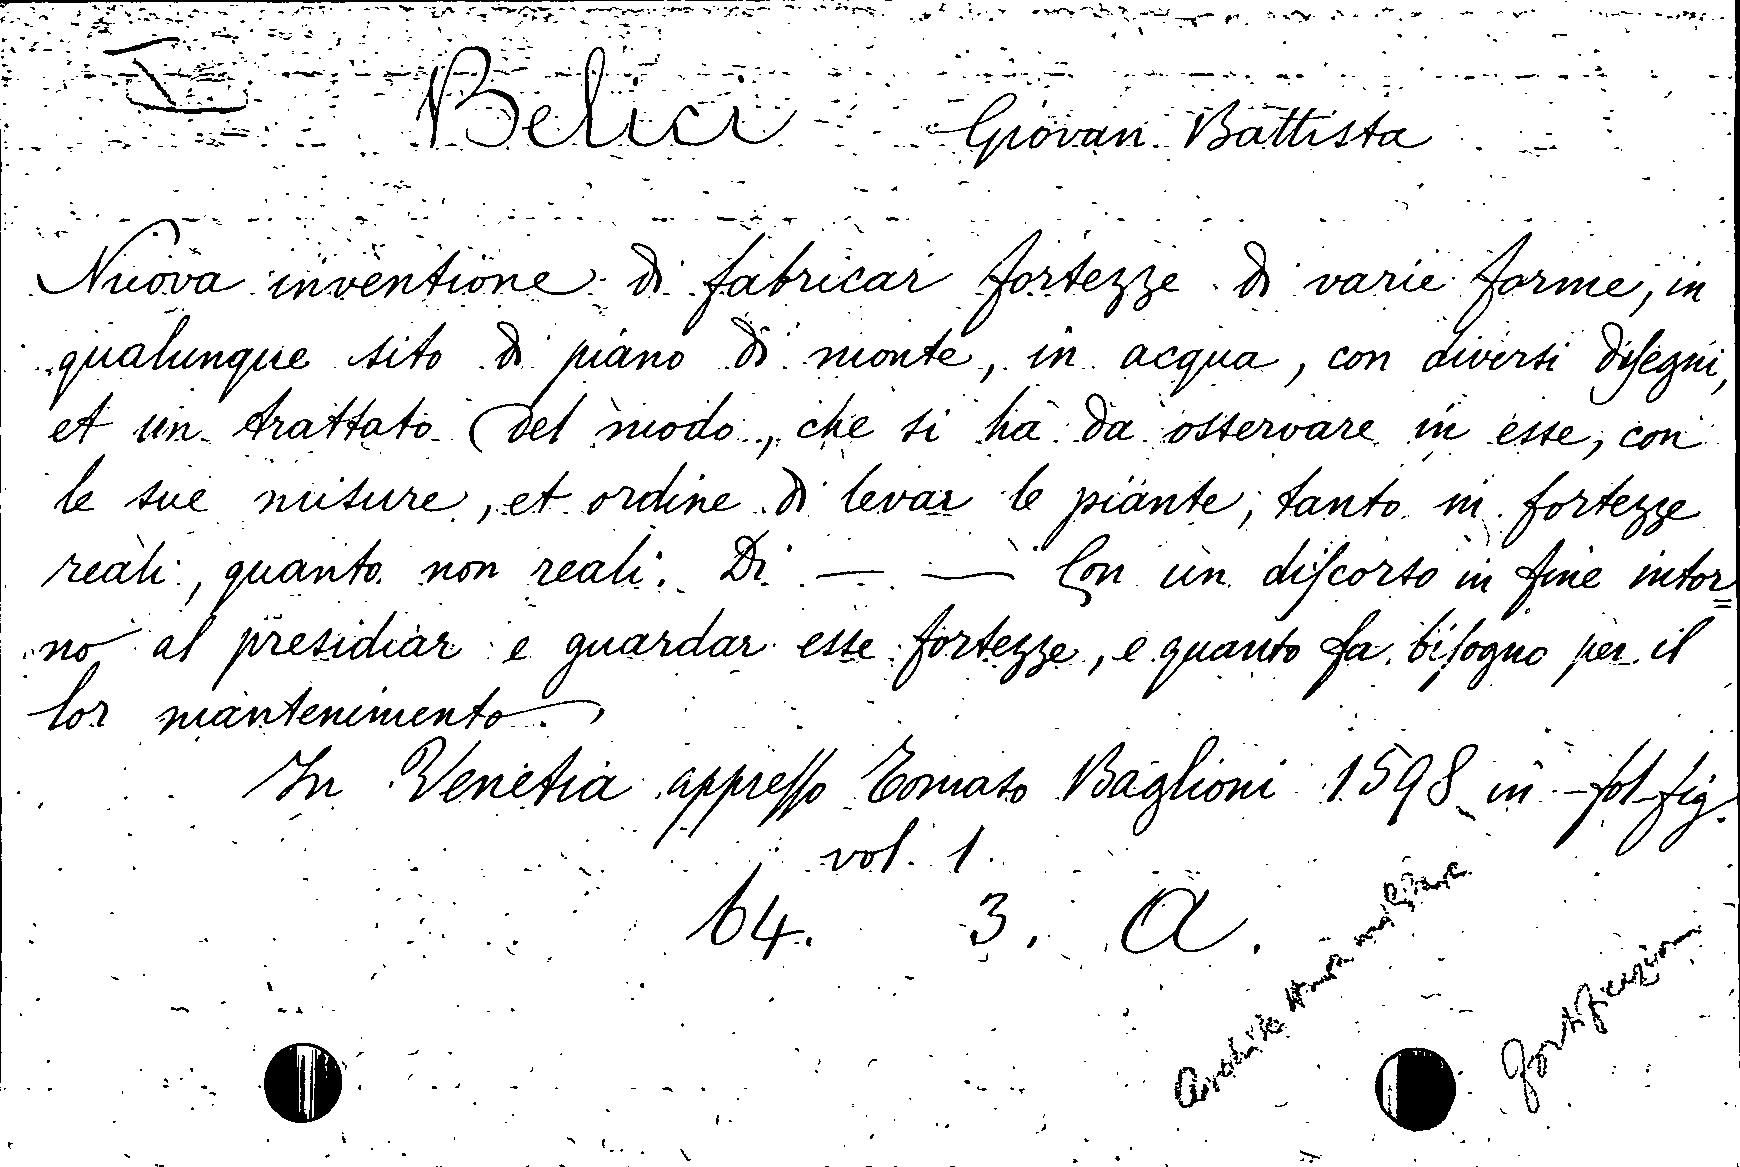 Belici Giovan Battista
Nuova inventione di fabricar fortezze di varie forme, in
qualunque sito di piano di monte, in acqua, con diversi diſegni,
et un trattato del modo, che si hà da osservare in esse, con
le sue misure, et ordine di levar le piante, tanto in fortezze
reali, quanto non reali. Di — — Con un diſcorso in fine intor=
no al presidiar e guardar esse fortezze, e quanto fa biſogno per il
lor mantenimento.
In Venetia appreſſo Tomaso Baglioni 1598 in fol fig.
vol. 1.
64. 3. A.
Architettura militare
Fortificazioni